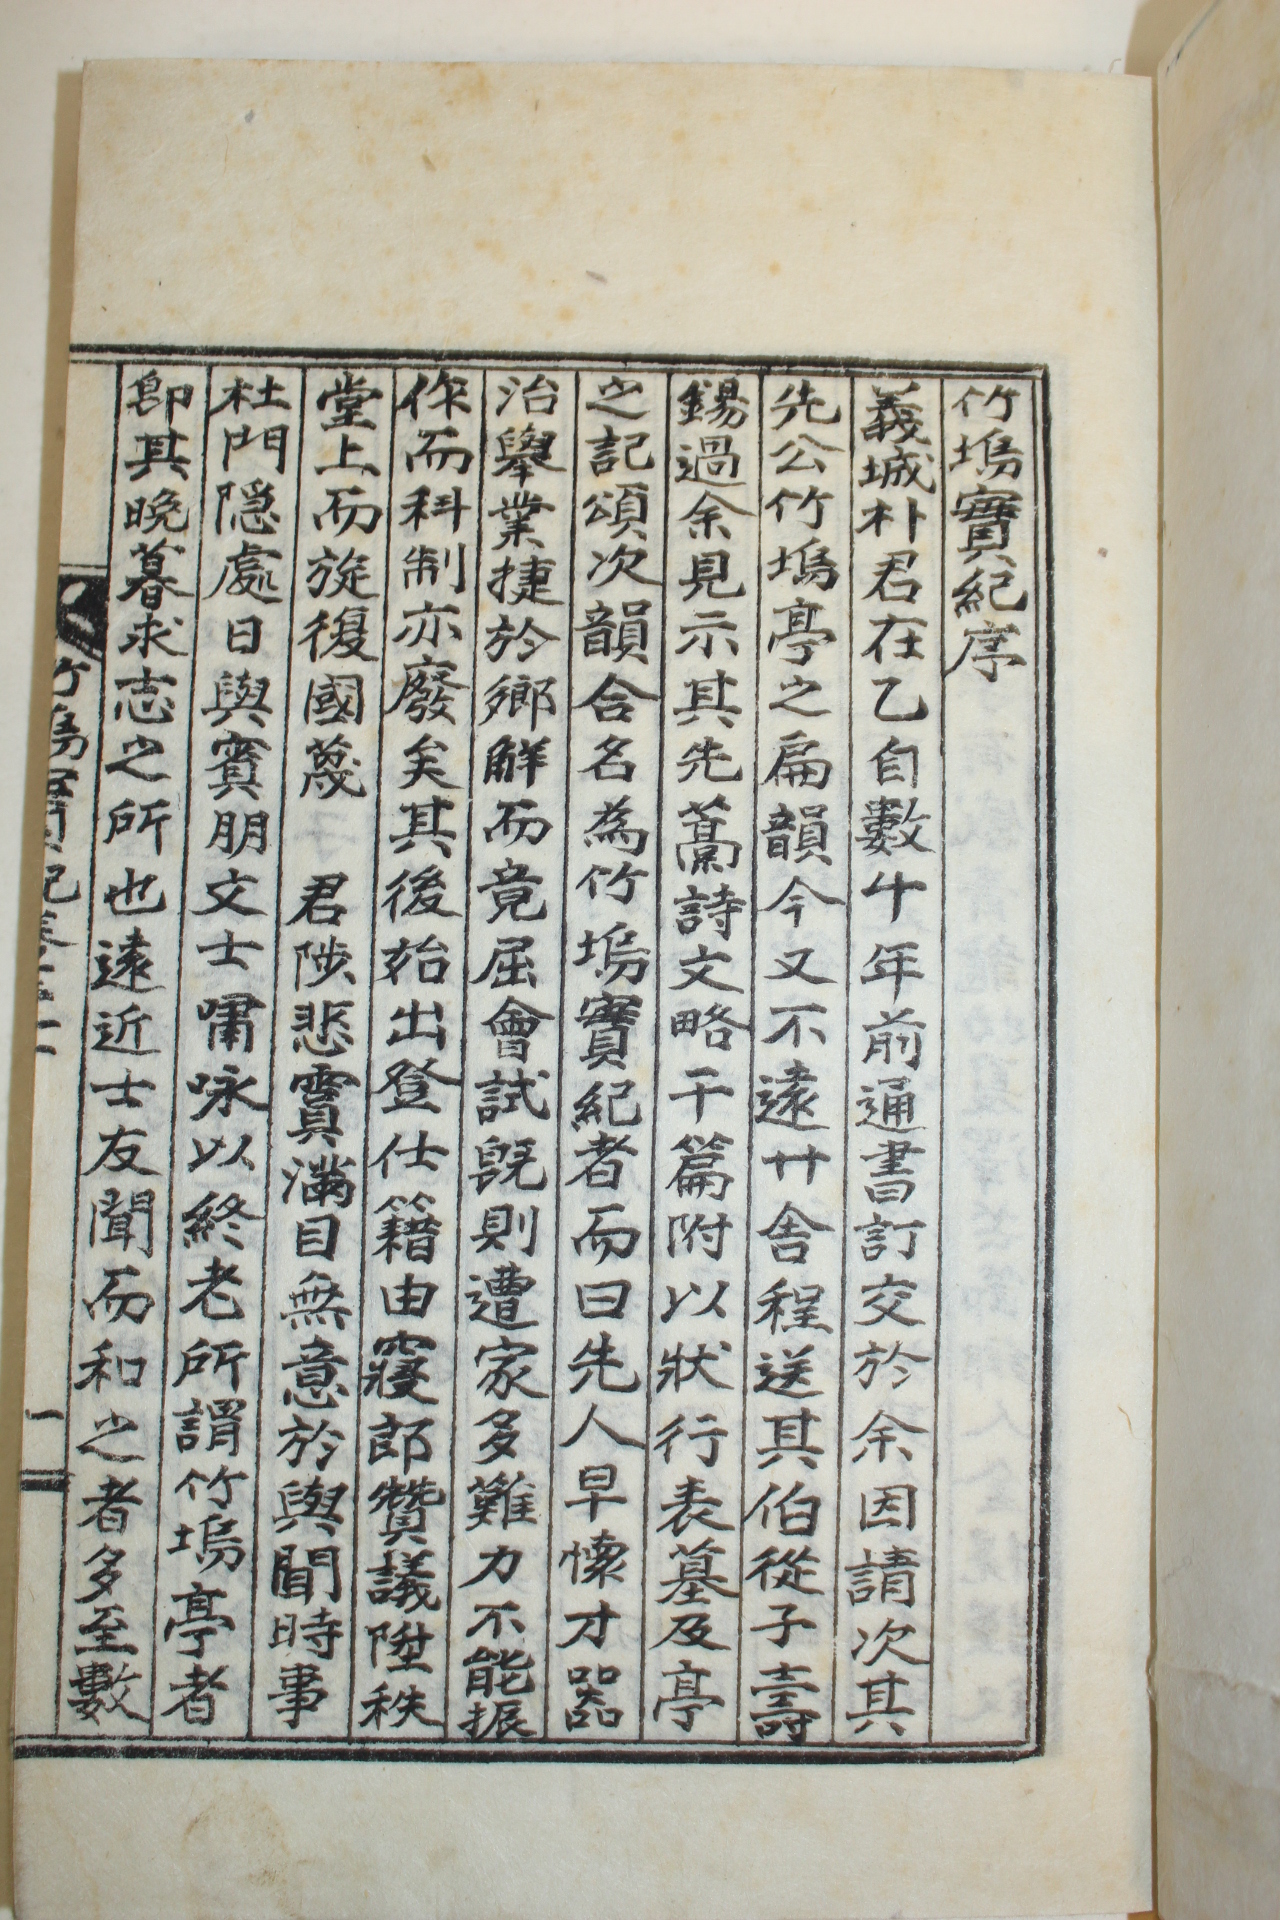 竹塢實紀序
義城朴君在乙自數十年前通書訂交於余因請次其
先公竹塢亭之扁韻今又不遠卄舍程送其伯從子壽
錫過余見示其先藁詩文略干篇附以狀行表墓及亭
之記頌次韻合名為竹塢實紀者而曰先人早懷才器
治擧業捷於鄉解而竟屈會試旣則遭家多難力不能振
作而科制亦廢矣其後始出登仕籍由寢郎贊議陞秩
堂上而旋復國蔑 君陟悲實滿目無意於與聞時事
杜門隱處日與賓朋文士嘯咏以終老所謂竹塢亭者
卽其晚暮求志之所也遠近士友聞而和之者多至數
竹塢實紀卷之一
一